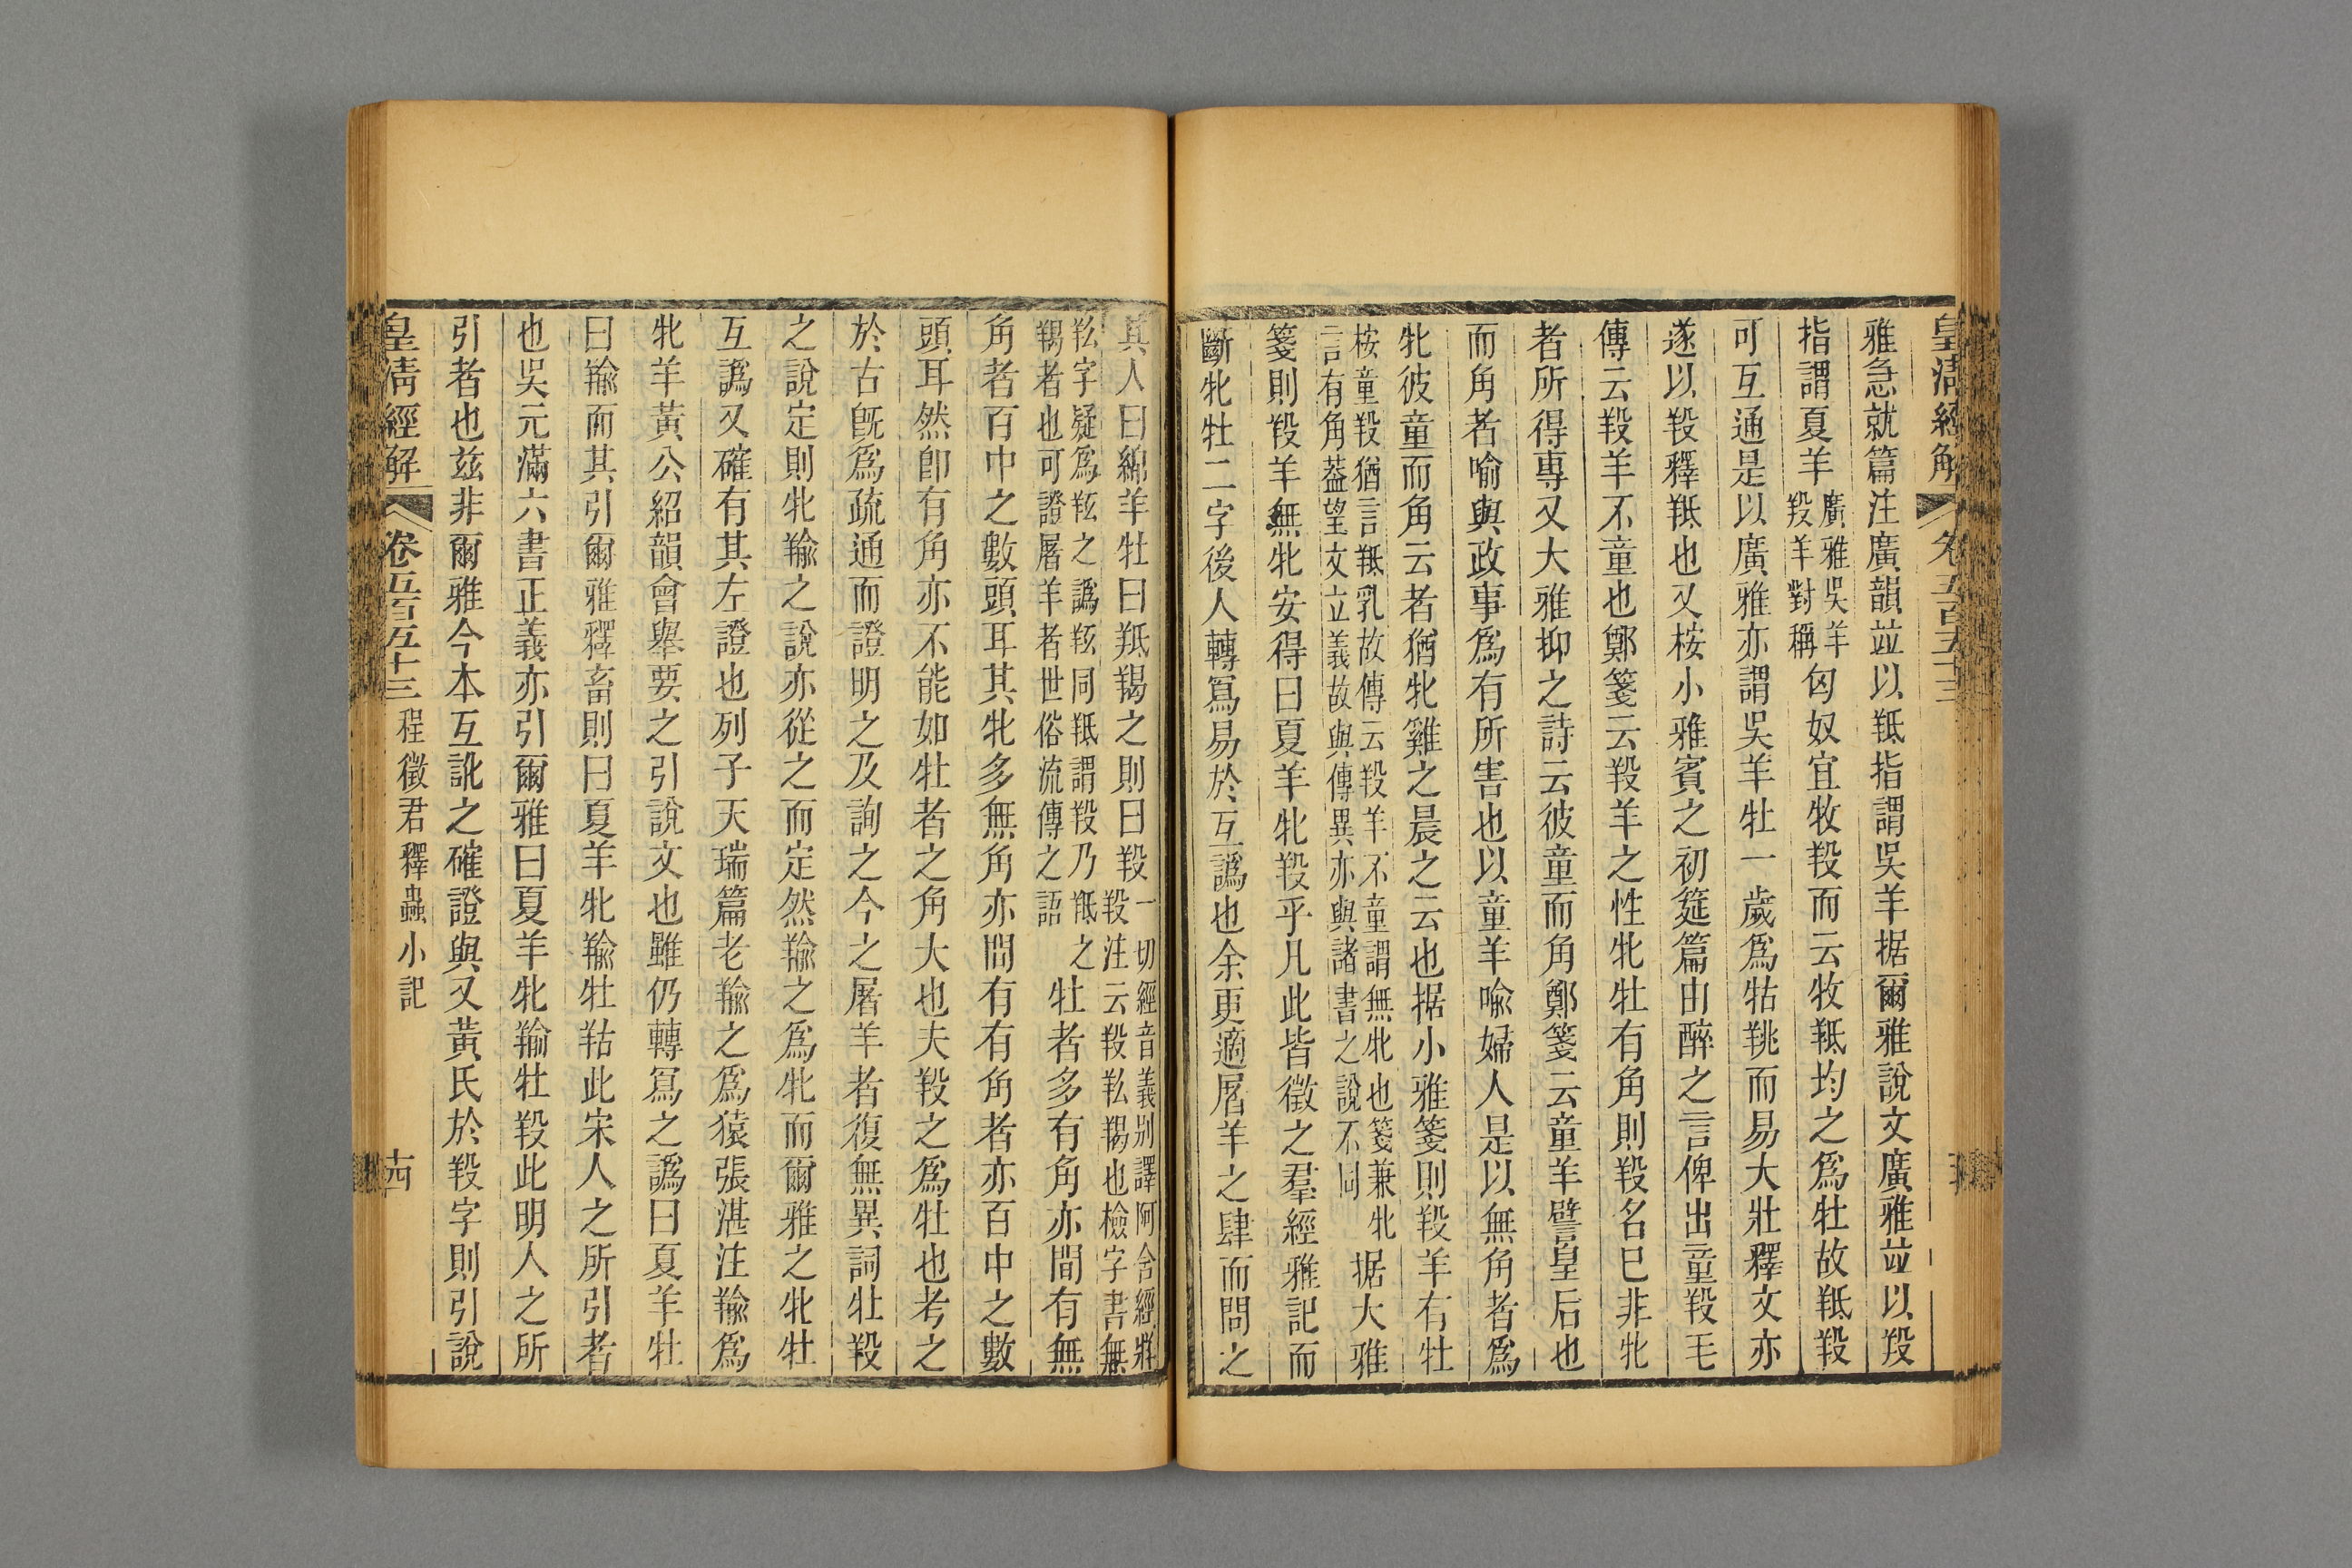 皇清經解 卷五百五十三
雅急就篇注廣韻竝以羝指謂吳羊据爾雅說文廣雅竝以羖
指謂夏羊廣雅吳羊羖羊對稱匈奴宜牧羖而云牧羝均之爲牡故羝羖
可互通是以廣雅亦謂吳羊牡一歲爲牯羜而易大壯釋文亦
遂以羖釋羝也又桉小雅賓之初筵篇由醉之言俾出童羖毛
傳云羖羊不童也鄭箋云羖羊之性牝牡有角則羖名已非牝
者所得專又大雅抑之詩云彼童而角鄭箋云童羊譬皇后也
而角者喻與政事爲有所害也以童羊喻婦人是以無角者爲
牝彼童而角云者猶牝雞之晨之云也据小雅箋則羖羊有牡
桉童羖猶言羝乳故傳云羖羊不童謂無牝也箋兼牝言有角葢望文立義故與傳異亦與諸書之說不同据大雅
箋則羖羊無牝安得曰夏羊牝羖乎凡此皆徵之羣經雅記而
斷牝牡二字後人轉寫易於互譌也余更適屠羊之肆而問之
其人曰綿羊牡曰羝羯之則曰羖一切經音義别譯阿含經羖羖注云羖羝羯也檢字書無
羝字疑爲羝之譌羝同羝謂羖乃羝之羯者也可證屠羊者世俗流傳之語牡者多有角亦間有無
角者百中之數頭耳其牝多無角亦間有有角者亦百中之數
頭耳然卽有角亦不能如牡者之角大也夫羖之爲牡也考之
於古旣爲疏通而證明之及詢之今之屠羊者復無異詞牡羖
之說定則牝羭之說亦從之而定然羭之爲牝而爾雅之牝牡
互譌又確有其左證也列子天瑞篇老羭之爲猨張湛注羭爲
牝羊黃公紹韻會舉要之引說文也雖仍轉寫之譌曰夏羊牡
曰羭而其引爾雅釋畜則曰夏羊牝羭牡羖此宋人之所引者
也吳元滿六書正義亦引爾雅曰夏羊牝羭牡羖此明人之所
引者也茲非爾雅今本互訛之確證與又黃氏於羖字則引說
皇清經解 卷五百五十三 程徵君釋蟲小記 十四